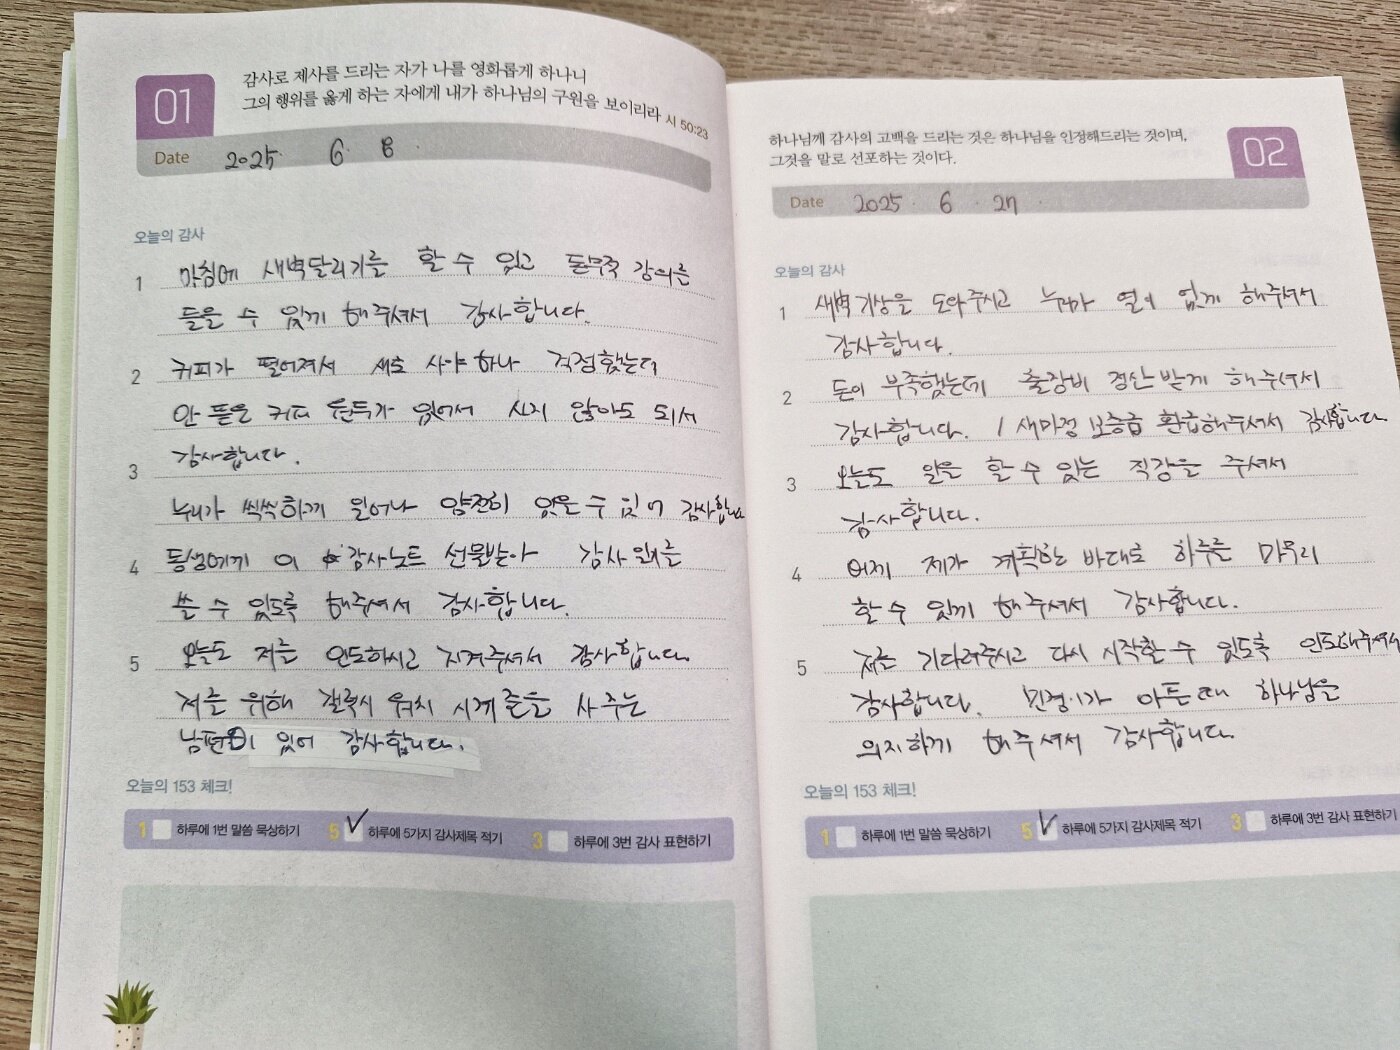 01
감사로 제사를 드리는 자가 나를 영화롭게 하나니
그의 행위를 옳게 하는 자에게 내가 하나님의 구원을 보이리라 시 50:23
Date 2025 6 8
오늘의 감사
1 아침에 새벽달리기를 할 수 있고 돈무적 강의를
들을 수 있게 해주셔서 감사합니다.
2 커피가 떨어져서 새로 사야 하나 걱정했는데
안 뜯은 커피 원두가 있어서 사지 않아도 되서
3 감사합니다.
누가 씩씩하게 일어나 얌전히 있을 수 있어 감사합니다
4 동생에게 이 감사노트 선물받아 감사 일기를
쓸 수 있도록 해주셔서 감사합니다.
5 오늘도 저를 인도하시고 지켜주셔서 감사합니다.
저를 위해 갤럭시 워치 시계 줄을 사 주는
남편이 있어 감사합니다.
오늘의 153 체크!
1 하루에 1번 말씀 묵상하기 5 하루에 5가지 감사제목 적기 3 하루에 3번 감사 표현하기
하나님께 감사의 고백을 드리는 것은 하나님을 인정해드리는 것이며,
그것을 말로 선포하는 것이다.
02
Date 2025 6 27
오늘의 감사
1 새벽기상을 도와주시고 누가 열이 없게 해주셔서
감사합니다.
2 돈이 부족했는데 출장비 정산받게 해주셔서
감사합니다. / 새마정 보증금 환급해주셔서 감사합니다.
3 오늘도 일을 할 수 있는 직장을 주셔서
감사합니다.
4 어제 제가 계획한 바대로 하루를 마무리
할 수 있게 해주셔서 감사합니다.
5 저를 기다려주시고 다시 시작할 수 있도록 인도해주셔서
감사합니다. 민정이가 아픈데 하나님을
의지하게 해주셔서 감사합니다.
오늘의 153 체크!
1 하루에 1번 말씀 묵상하기 5 하루에 5가지 감사제목 적기 3 하루에 3번 감사 표현하기